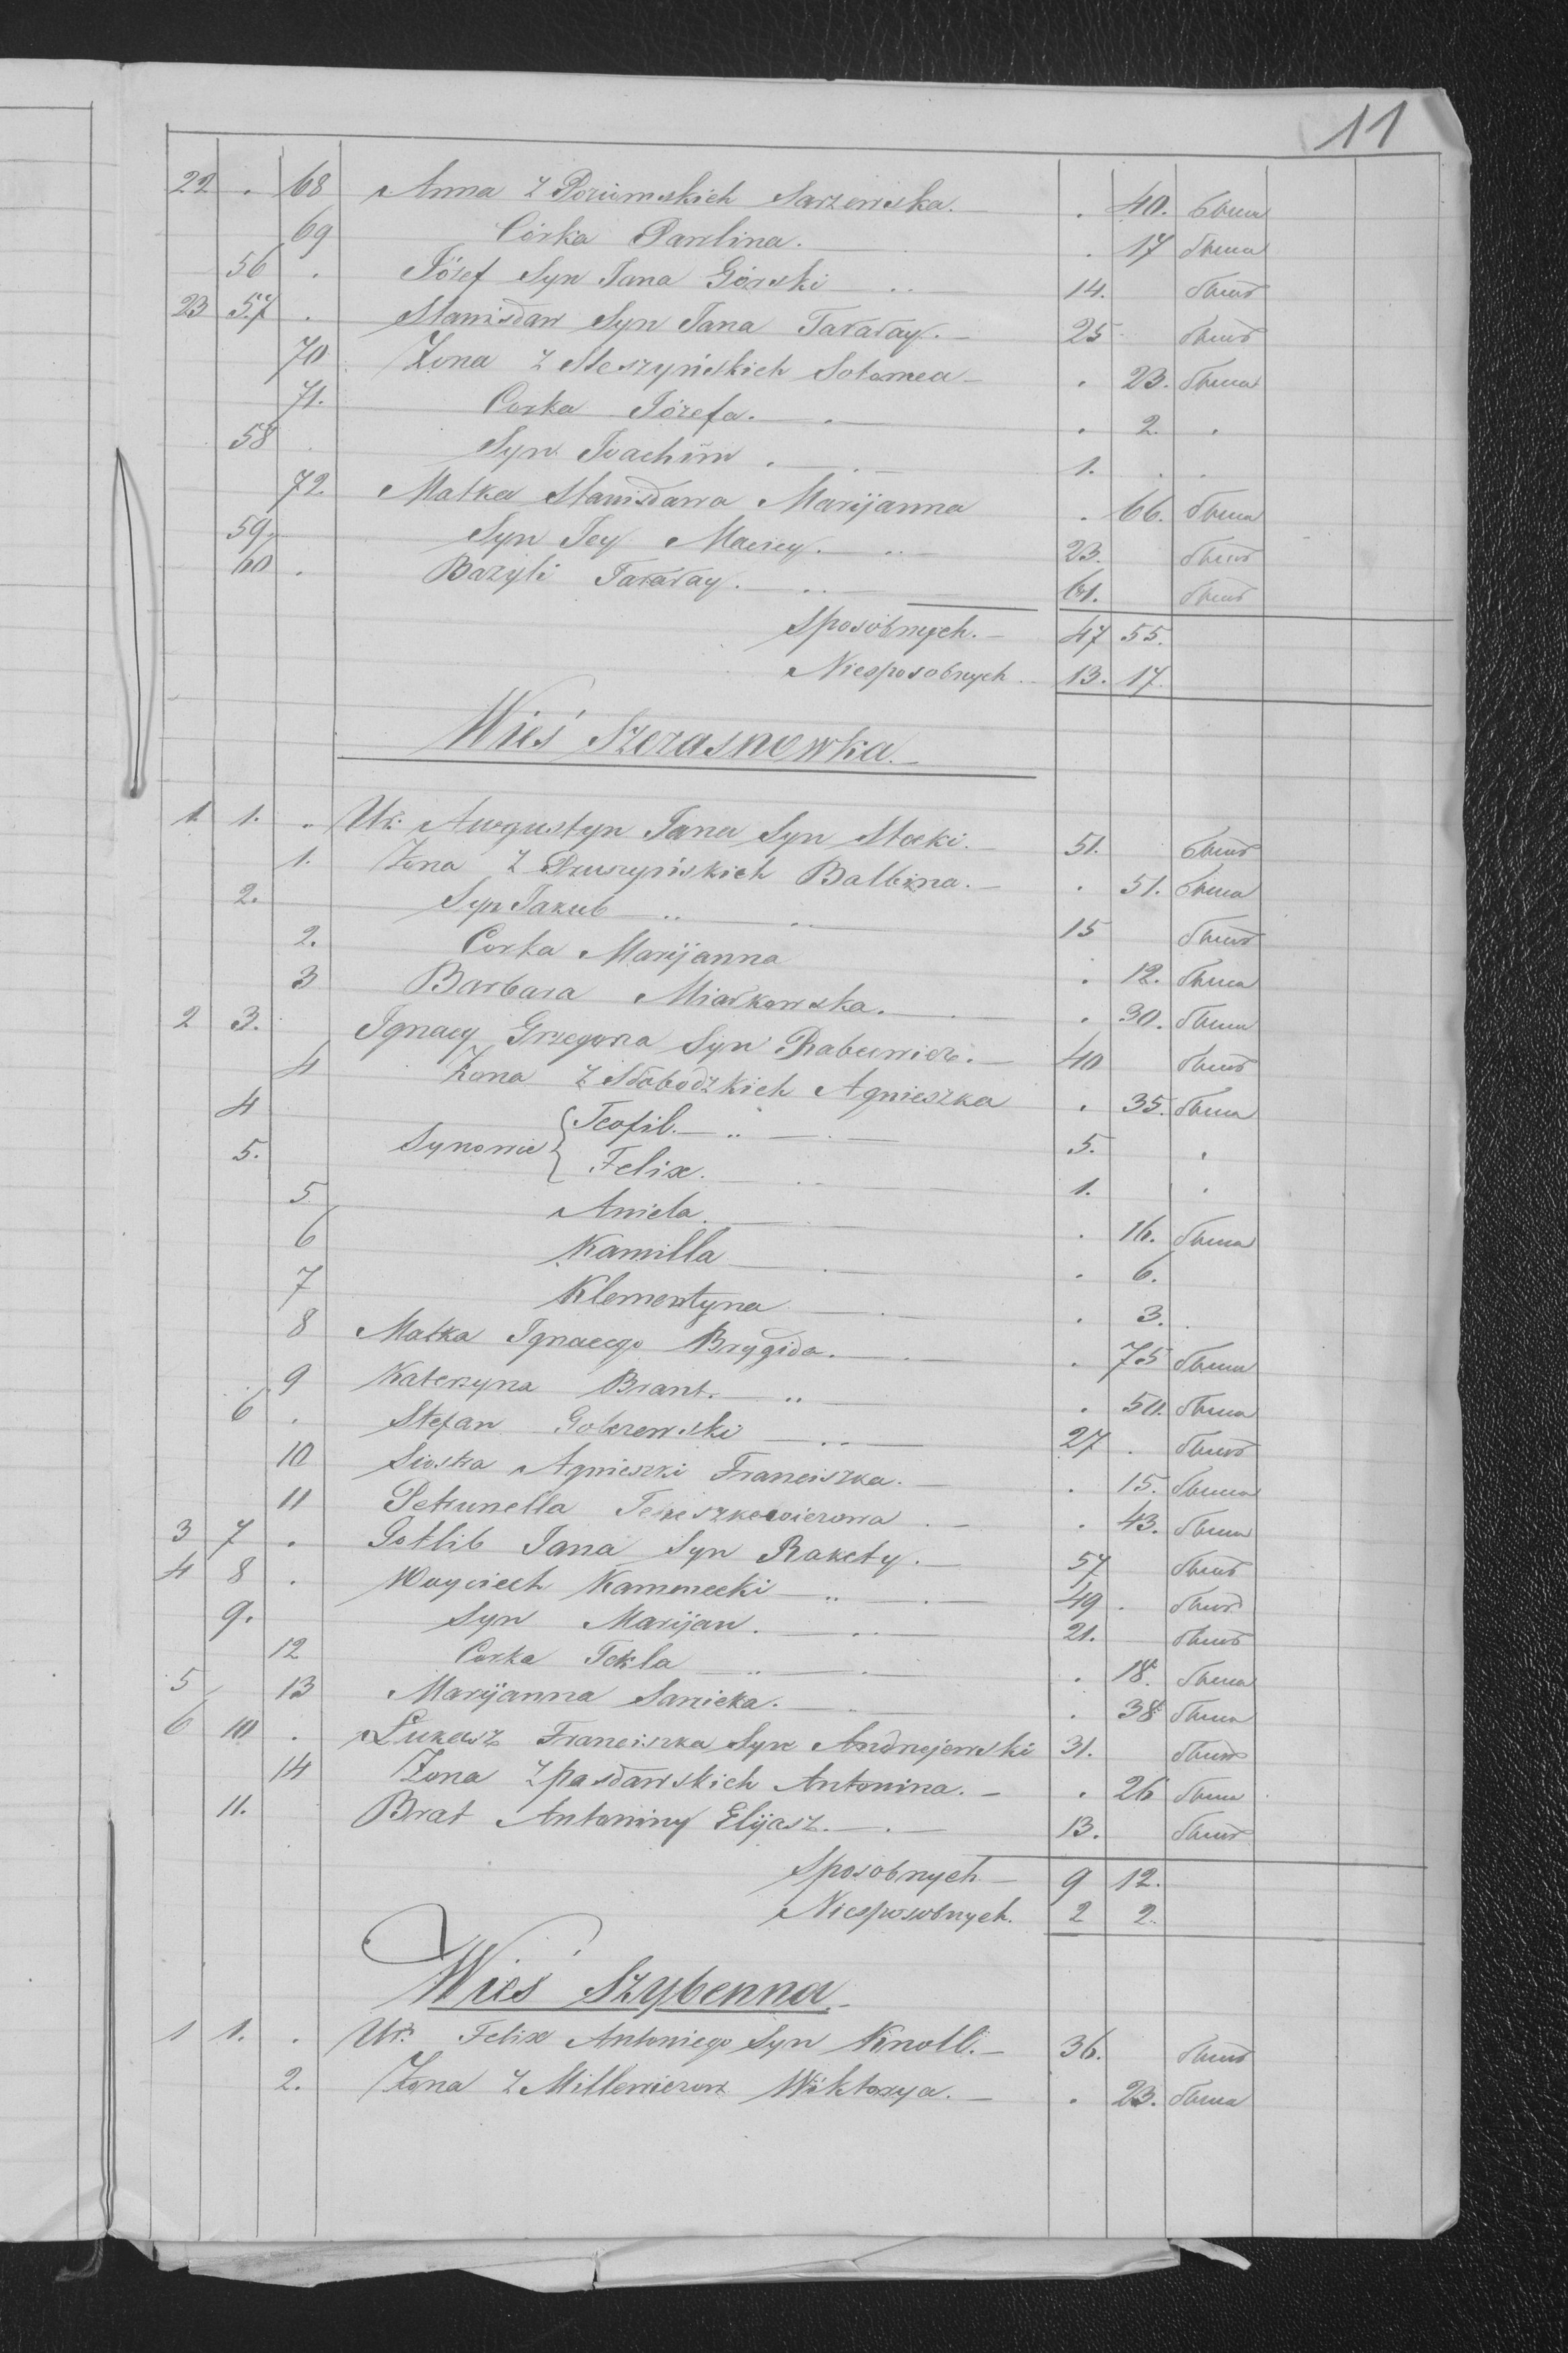 11
22 . 68 Anna z Poziomskich Sarzewska. . 40. была
69 Córka Paulina. . 17 была
56 . Józef Syn Jana Górski 14. былъ
23 57 . Stanisław Syn Jana Tararay. 25 былъ
70 Zona z Steszyńskich Solomea . 23. была
71. Corka Józefa. . 2. .
58 Syn Joachim . 1. . .
72. Matka Stanisława Maryjanna . 66. была
59. Syn Jey Maciey. 23. былъ
60 . Bazyli Tararay. 61. былъ
Sposobnych. 47 55.
Niesposobnych 13. 17.
Wieś Szerasnowka.
1. 1. Ur. Augustyn Jana Syn Stocki. 51. былъ
1. Zona z Druszyńskich Balbina. . 51. была
2. Syn Jakub 15 былъ
2. Corka Maryjanna . 12. была
3 Barbara Miarkowska. . 30. была
2 3. Ignacy Grzegorza Syn Rabcewicz. 40 былъ
4 Zona z Słobodzkich Agnieszka . 35. была
4 Synowie { Teofil. 5. .
5. Felix. 1. .
5 Aniela. . 16. была
6 Kamilla . 6.
7 Klementyna . 3.
8 Matka Ignacego Brygida. . 75 была
9 Katerzyna Brant. . 50. была
6 . Stefan Golczewski 27 . былъ
10 Siostra Agnieszki Franciszka. . 15. была
11 Petrunella . 43. была
3 7 . Gotlib Jana Syn Rakety. 57 былъ
4 8 . Woyciech Kamenecki 49 . былъ
9. Syn Maryjan. 21. былъ
12 Corka Tekla . 18. была
5 13 Maryjanna Sanicka. . 38 была
6 10 . Łukasz Franciszka Syn Andrzejewski 31. былъ
14 Zona z Pasławskich Antonina. . 26 была
11. Brat Antoniny Elijasz. 13. былъ
Sposobnych 9 12.
Niesposobnych. 2 2.
Wieś Szybenna
1 1. . Ur. Felix Antoniego Syn Knoll. 36. былъ
2. Zona z Millewiczow Wiktorya. . 23. была